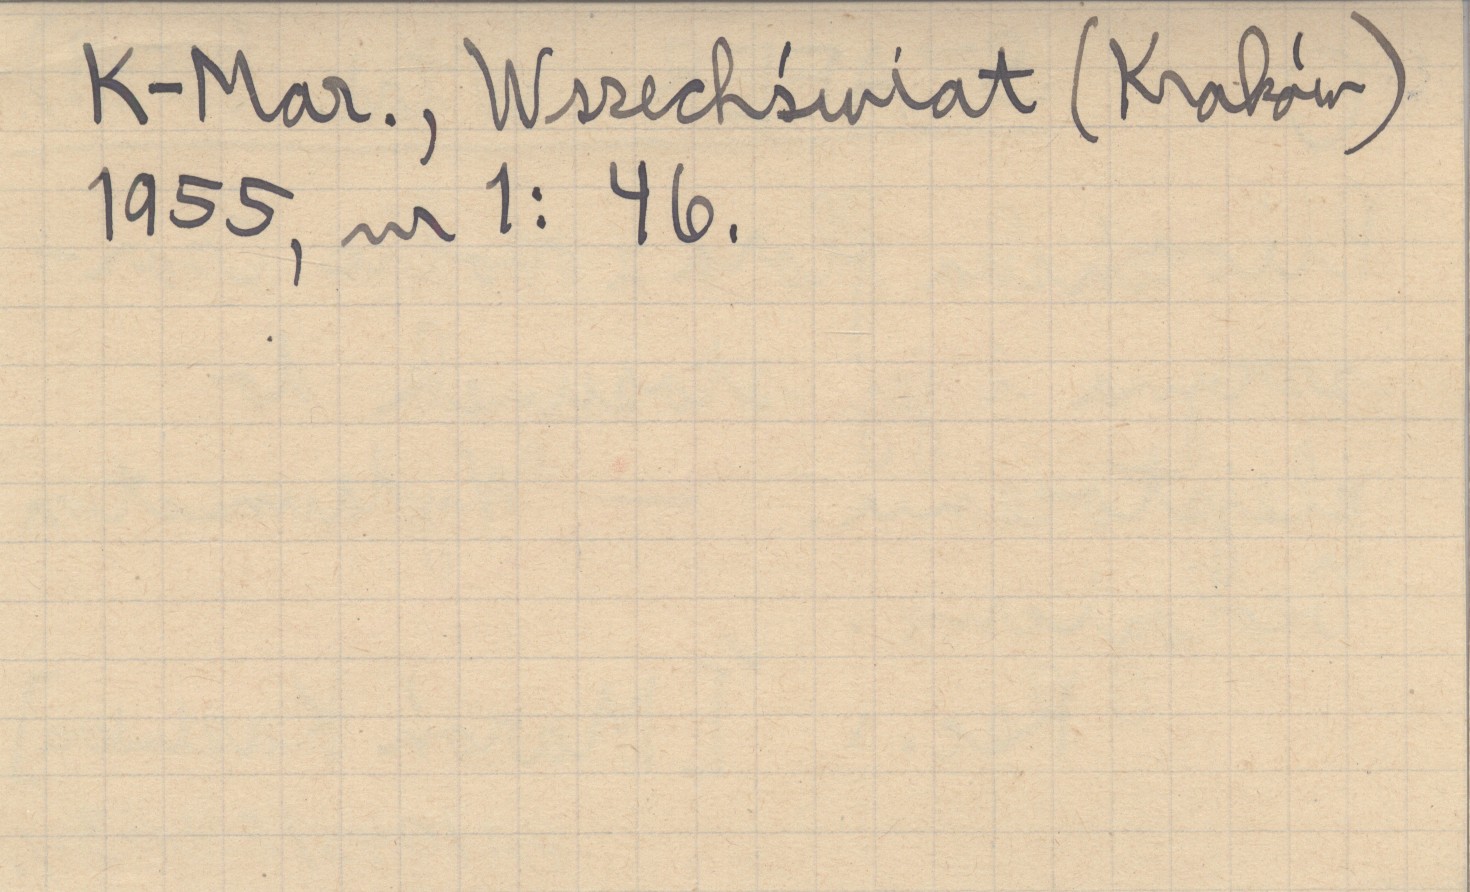 K-Mar., Wszechświat (Kraków)
1955, nr 1: 46.